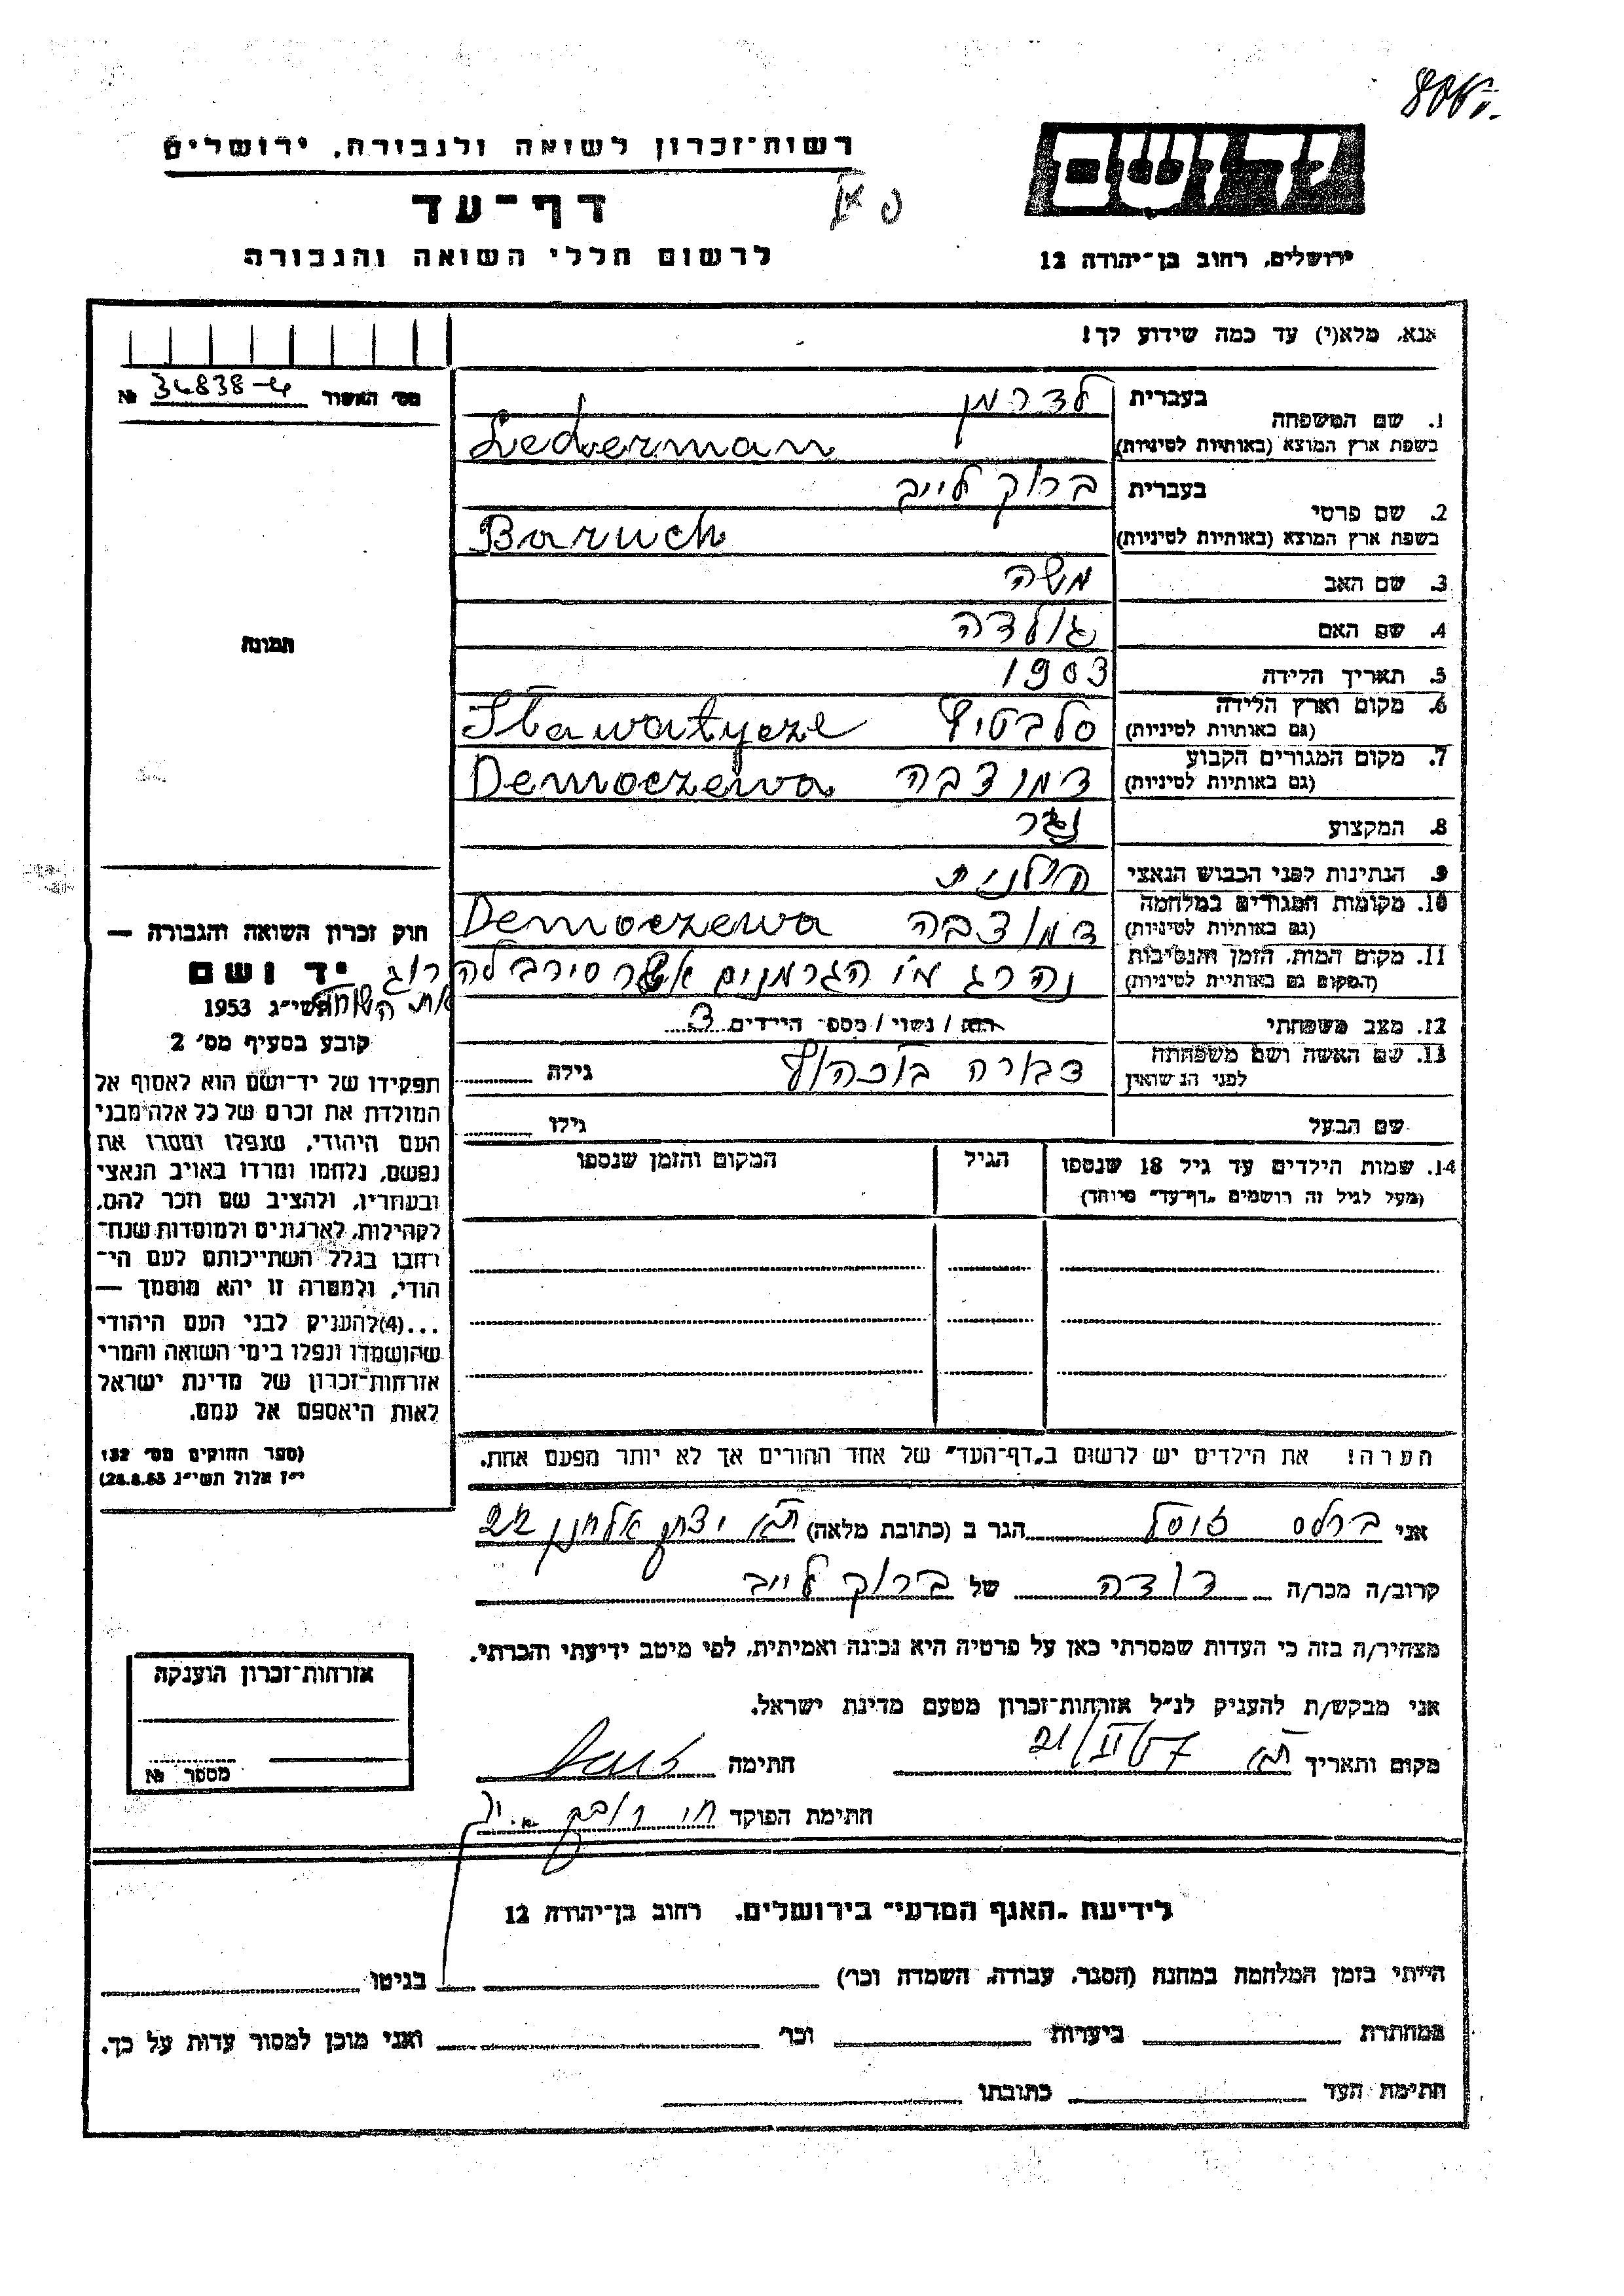 רשות־זכרון לשואה ולגבורה, ירושלים
דף־עד
לרשום חללי השואה והגבורה
יד ושם
ירושלים, רחוב בן־יהודה 12
אנא, מלא(י) עד כמה שידוע לך!
מס' האשור № 34838-4
1. שם המשפחה בעברית לדרמן
בשפת ארץ המוצא (באותיות לטיניות) Lederman
2. שם פרטי בעברית ברוך לייב
בשפת ארץ המוצא (באותיות לטיניות) Baruch
3. שם האב משה
4. שם האם גולדה
5. תאריך הלידה 1903
6. מקום וארץ הלידה (גם באותיות לטיניות) סלבטיץ Sławatycze
7. מקום המגורים הקבוע (גם באותיות לטיניות) דמוצבה Democzewa
8. המקצוע נגר
9. הנתינות לפני הכבוש הנאצי פולנית
10. מקומות המגורים במלחמה (גם באותיות לטיניות) דמוצבה Democzewa
11. מקום המות, הזמן והנסיבות (המקום גם באותיות לטיניות) נהרג מ״ו הגרמנים אשר סירב להרוג את
12. מצב משפחתי רווק / נשוי / מספר הילדים 3
13. שם האשה ושם משפחתה לפני הנישואין דבורה גילה
שם הבעל גילו
14. שמות הילדים עד גיל 18 שנספו (מעל לגיל זה רושמים „דף־עד" מיוחד) הגיל המקום והזמן שנספו
הערה! את הילדים יש לרשום ב„דף־העד" של אחד ההורים אך לא יותר מפעם אחת.
תמונה
חוק זכרון השואה והגבורה —
יד ושם
תשי״ג 1953
קובע בסעיף מס' 2
תפקידו של יד־ושם הוא לאסוף אל
המולדת את זכרם של כל אלה מבני
העם היהודי, שנפלו ומסרו את
נפשם, נלחמו ומרדו באויב הנאצי
ובעוזריו, ולהציב שם וזכר להם,
לקהילות, לארגונים ולמוסדות שנח־
רבו בגלל השתייכותם לעם הי־
הודי, ולמטרה זו יהא מוסמך —
...(4) להעניק לבני העם היהודי
שהושמדו ונפלו בימי השואה והמרי
אזרחות־זכרון של מדינת ישראל
לאות היאספם אל עמם.
(ספר החוקים מס' 132
י״ז אלול תשי״ג 28.8.53)
אני ברלס זוסל הגר ב (כתובת מלאה) ת״א יצחק אלחנן 22
קרוב/ה מכר/ה דודה של ברוך לייב
מצהיר/ה בזה כי העדות שמסרתי כאן על פרטיה היא נכונה ואמיתית, לפי מיטב ידיעתי והכרתי.
אני מבקש/ת להעניק לנ״ל אזרחות־זכרון מטעם מדינת ישראל.
מקום ותאריך ת״א 21/II/57 חתימה
חתימת הפוקד
אזרחות־זכרון הוענקה
מספר №
לידיעת „האגף המדעי" בירושלים, רחוב בן־יהודה 12
הייתי בזמן המלחמה במחנה (הסגר, עבודה, השמדה וכו') בגיטו
במחתרת ביערות וכו' ואני מוכן למסור עדות על כך.
חתימת העד כתובתו